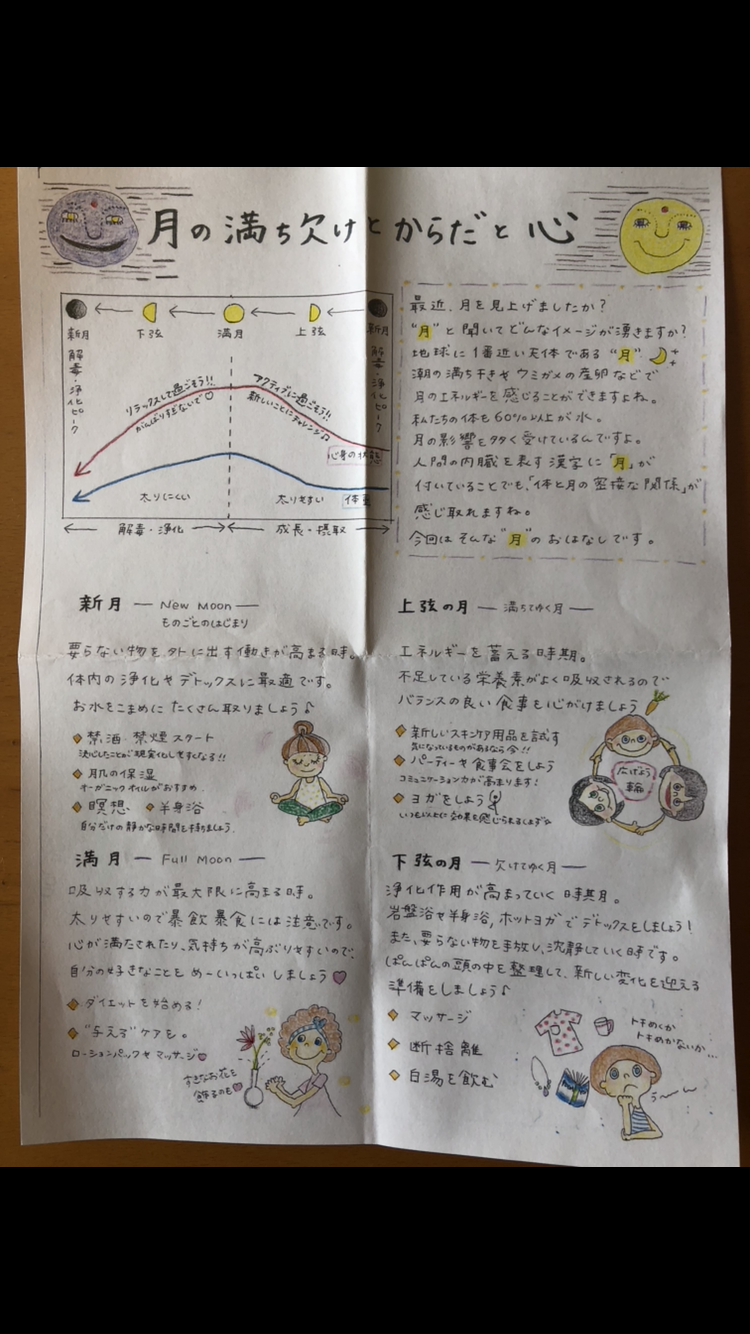 月の満ち欠けとからだと心
新月
下弦
満月
上弦
新月
解毒・浄化ピーク
解毒・浄化ピーク
リラックスして過ごそう!!
がんばりすぎないで♡
アクティブに過ごそう!!
新しいことにチャレンジ♫
心身の状態
太りにくい
太りやすい
体重
解毒・浄化
成長・摂取
最近、月を見上げましたか?
"月"と聞いてどんなイメージが湧きますか?
地球に1番近い天体である"月"
潮の満ち干きやウミガメの産卵などで
月のエネルギーを感じることができますよね。
私たちの体も60%以上が水。
月の影響を多く受けているんですよ。
人間の内臓を表す漢字に「月」が
付いていることでも、「体と月の密接な関係」が
感じ取れますね。
今回はそんな"月"のおはなしです。
新月 ― New Moon ―
ものごとのはじまり
要らない物を外に出す働きが高まる時。
体内の浄化やデトックスに最適です。
お水をこまめにたくさん取りましょう♪
◆禁酒・禁煙スタート
決心したことが現実化しやすくなる!!
◆肌の保湿
オーガニックオイルがおすすめ
◆瞑想 ◆半身浴
自分だけの静かな時間を持ちましょう
上弦の月 ― 満ちてゆく月 ―
エネルギーを蓄える時期。
不足している栄養素がよく吸収されるので
バランスの良い食事を心がけましょう
◆新しいスキンケア用品を試す
気になっているものがあるなら今!!
◆パーティーや食事会をしよう
コミュニケーション力が高まります!
◆ヨガをしよう
いつも以上に効果を感じられるはず☆
広げよう
輪
満月 ― Full Moon ―
吸収する力が最大限に高まる時。
太りやすいので暴飲暴食には注意です。
心が満たされたり、気持ちが高ぶりやすいので、
自分の好きなことをめーいっぱいしましょう♥
◆ダイエットを始める!
◆"与える"ケアを。
ローションパックやマッサージ♥
すきなお花を
飾るのも♥
下弦の月 ― 欠けてゆく月 ―
浄化作用が高まっていく時期。
岩盤浴や半身浴,ホットヨガでデトックスをしましょう!
また、要らない物を手放し、沈静していく時です。
ぱんぱんの頭の中を整理して、新しい変化を迎える
準備をしましょう♪
◆マッサージ
◆断捨離
◆白湯を飲む
トキめくか
トキめかないか…
う〜〜ん